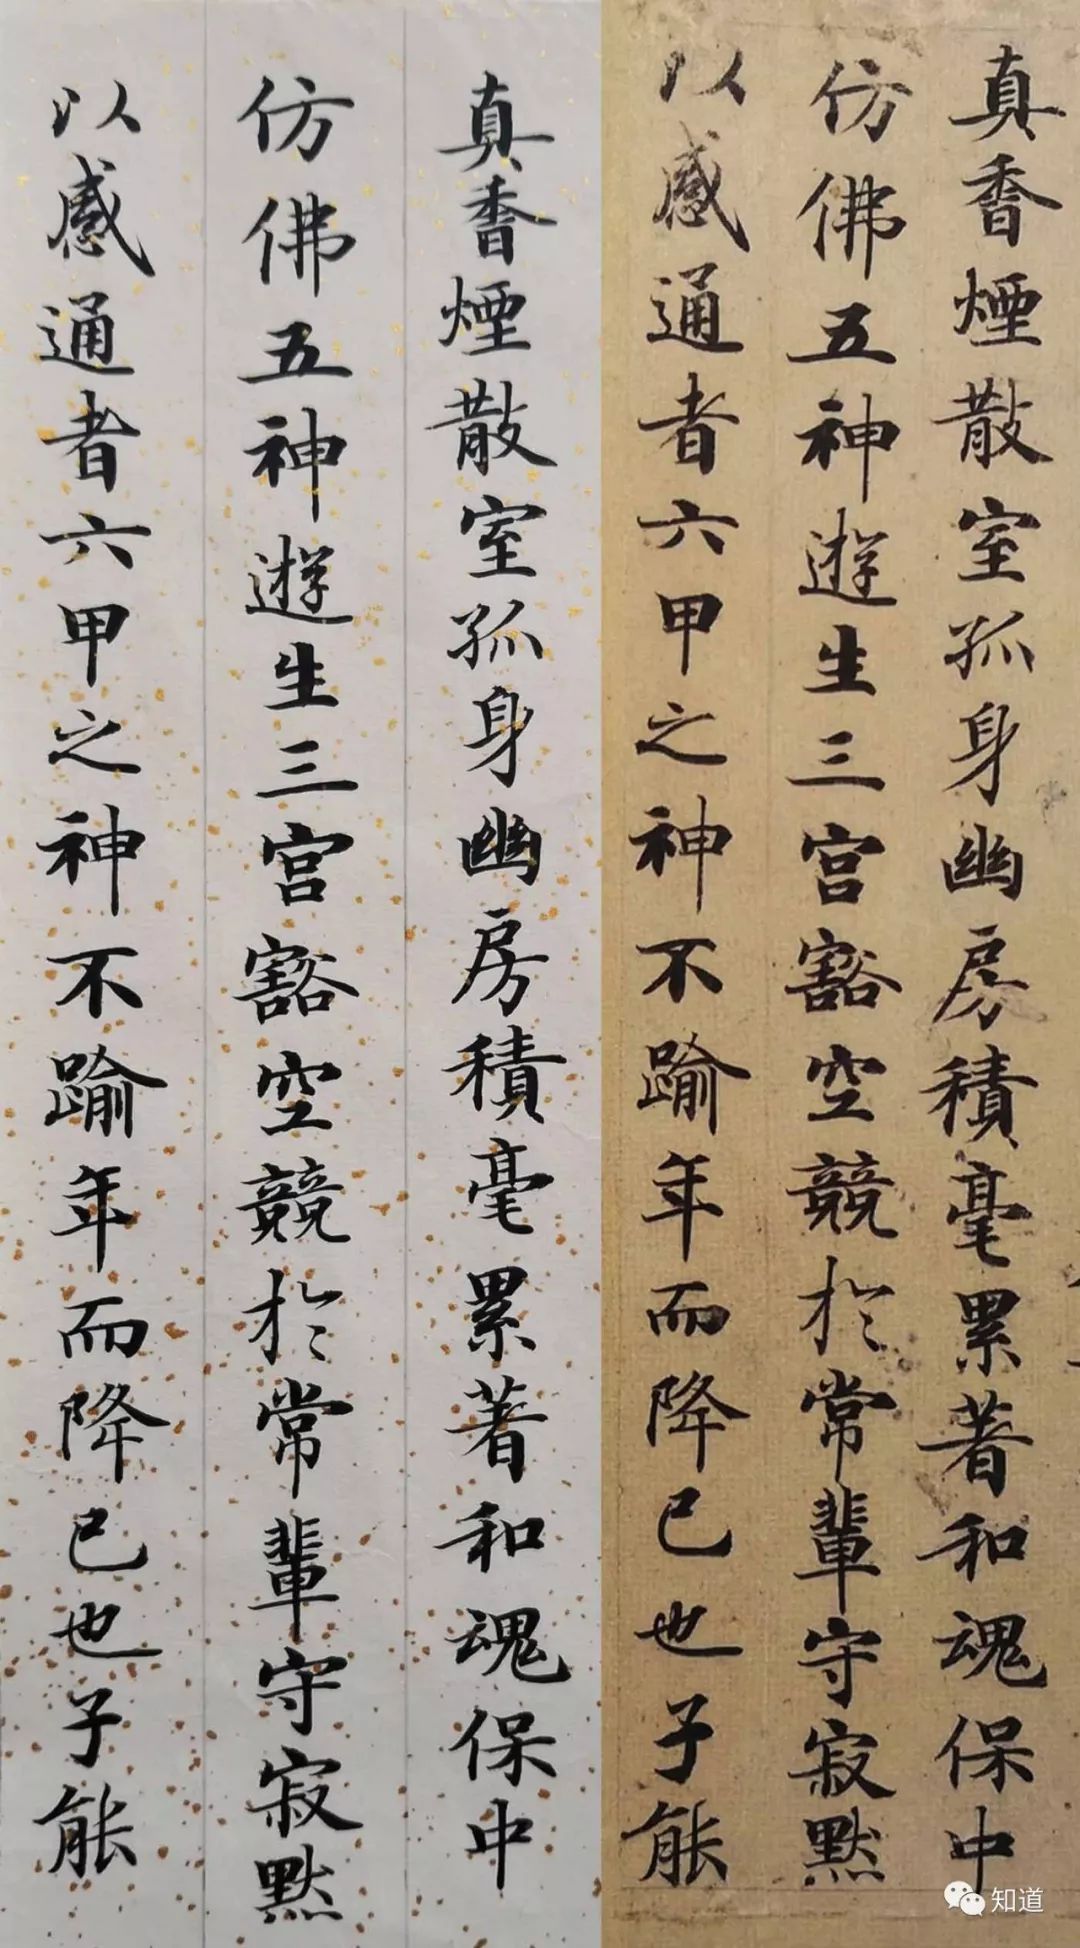 真香煙散室孤身幽房積毫累著和魂保中
仿佛五神遊生三宮豁空競於常輩守寂默
以感通者六甲之神不踰年而降已也子能
真香煙散室孤身幽房積毫累著和魂保中
仿佛五神遊生三宮豁空競於常輩守寂默
以感通者六甲之神不踰年而降已也子能
知道